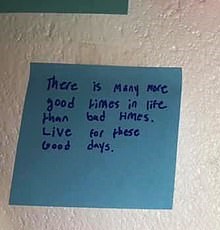 There is many more
good times in life
than bad times.
Live for these
Good days.